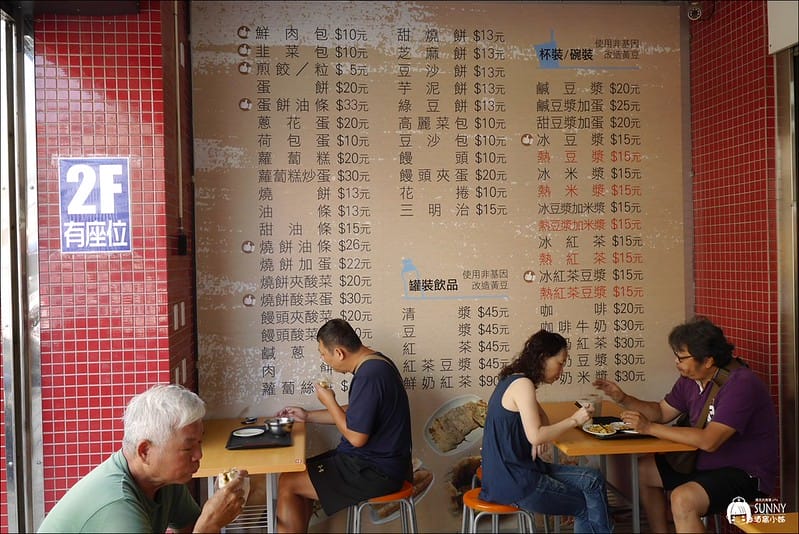 鮮肉包 $10元
韭菜包 $10元
煎餃／粒 $ 5元
蛋餅 $20元
蛋餅油條 $33元
蔥花蛋 $20元
荷包蛋 $10元
蘿蔔糕 $20元
蘿蔔糕炒蛋 $30元
燒餅 $13元
油條 $13元
甜油條 $15元
燒餅油條 $26元
燒餅加蛋 $22元
燒餅夾酸菜 $20元
燒餅酸菜蛋 $30元
饅頭酸菜蛋 $30元
饅頭夾酸菜 $20元
鹹蔥
肉餅
蘿蔔絲
甜燒餅 $13元
芝麻餅 $13元
豆沙餅 $13元
芋泥餅 $13元
綠豆餅 $13元
高麗菜包 $10元
豆沙包 $10元
饅頭 $10元
饅頭夾蛋 $20元
花捲 $10元
三明治 $15元
罐裝飲品
使用非基因
改造黃豆
清漿 $45元
豆漿 $45元
紅茶 $45元
紅茶豆漿 $45元
鮮奶紅茶 $90
杯裝/碗裝
使用非基因
改造黃豆
鹹豆漿 $20元
鹹豆漿加蛋 $25元
甜豆漿加蛋 $20元
冰豆漿 $15元
熱豆漿 $15元
冰米漿 $15元
熱米漿 $15元
冰豆漿加米漿 $15元
熱豆漿加米漿 $15元
冰紅茶 $15元
熱紅茶 $15元
冰紅茶豆漿 $15元
熱紅茶豆漿 $15元
咖啡 $20元
咖啡牛奶 $30元
奶紅茶 $30元
奶豆漿 $30元
奶米漿 $30元
2F
有座位
SUNNY